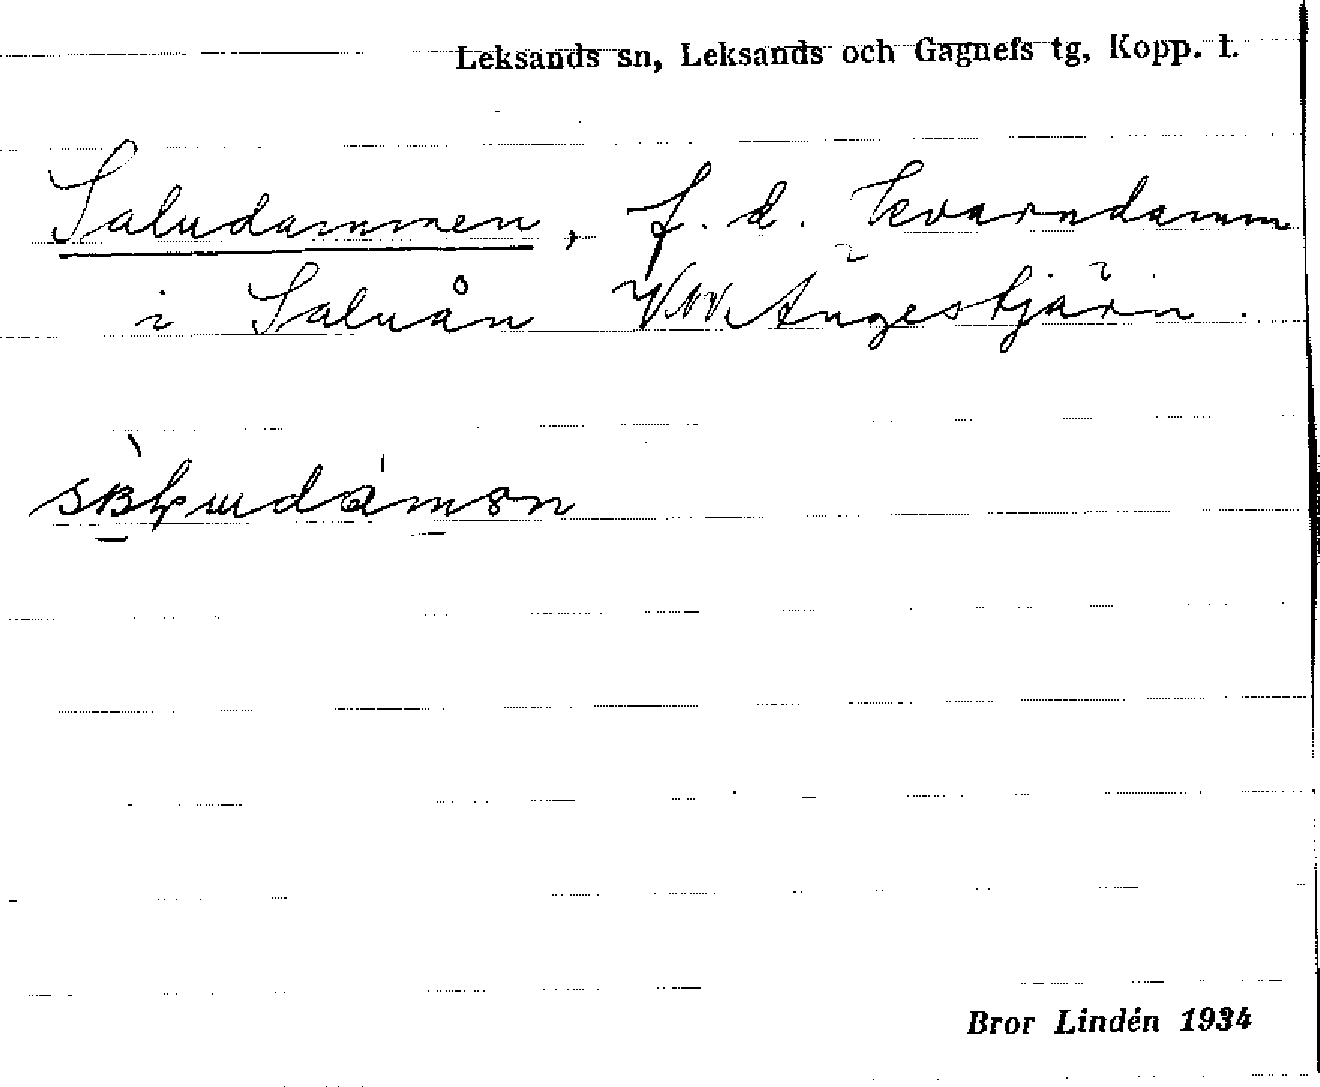 Leksands sn, Leksands och Gagnefs tg, Kopp. l.
Saludammen, f. d. kvarndamm
i Saluån VNV Ängestjärn.
Bror Lindén 1934